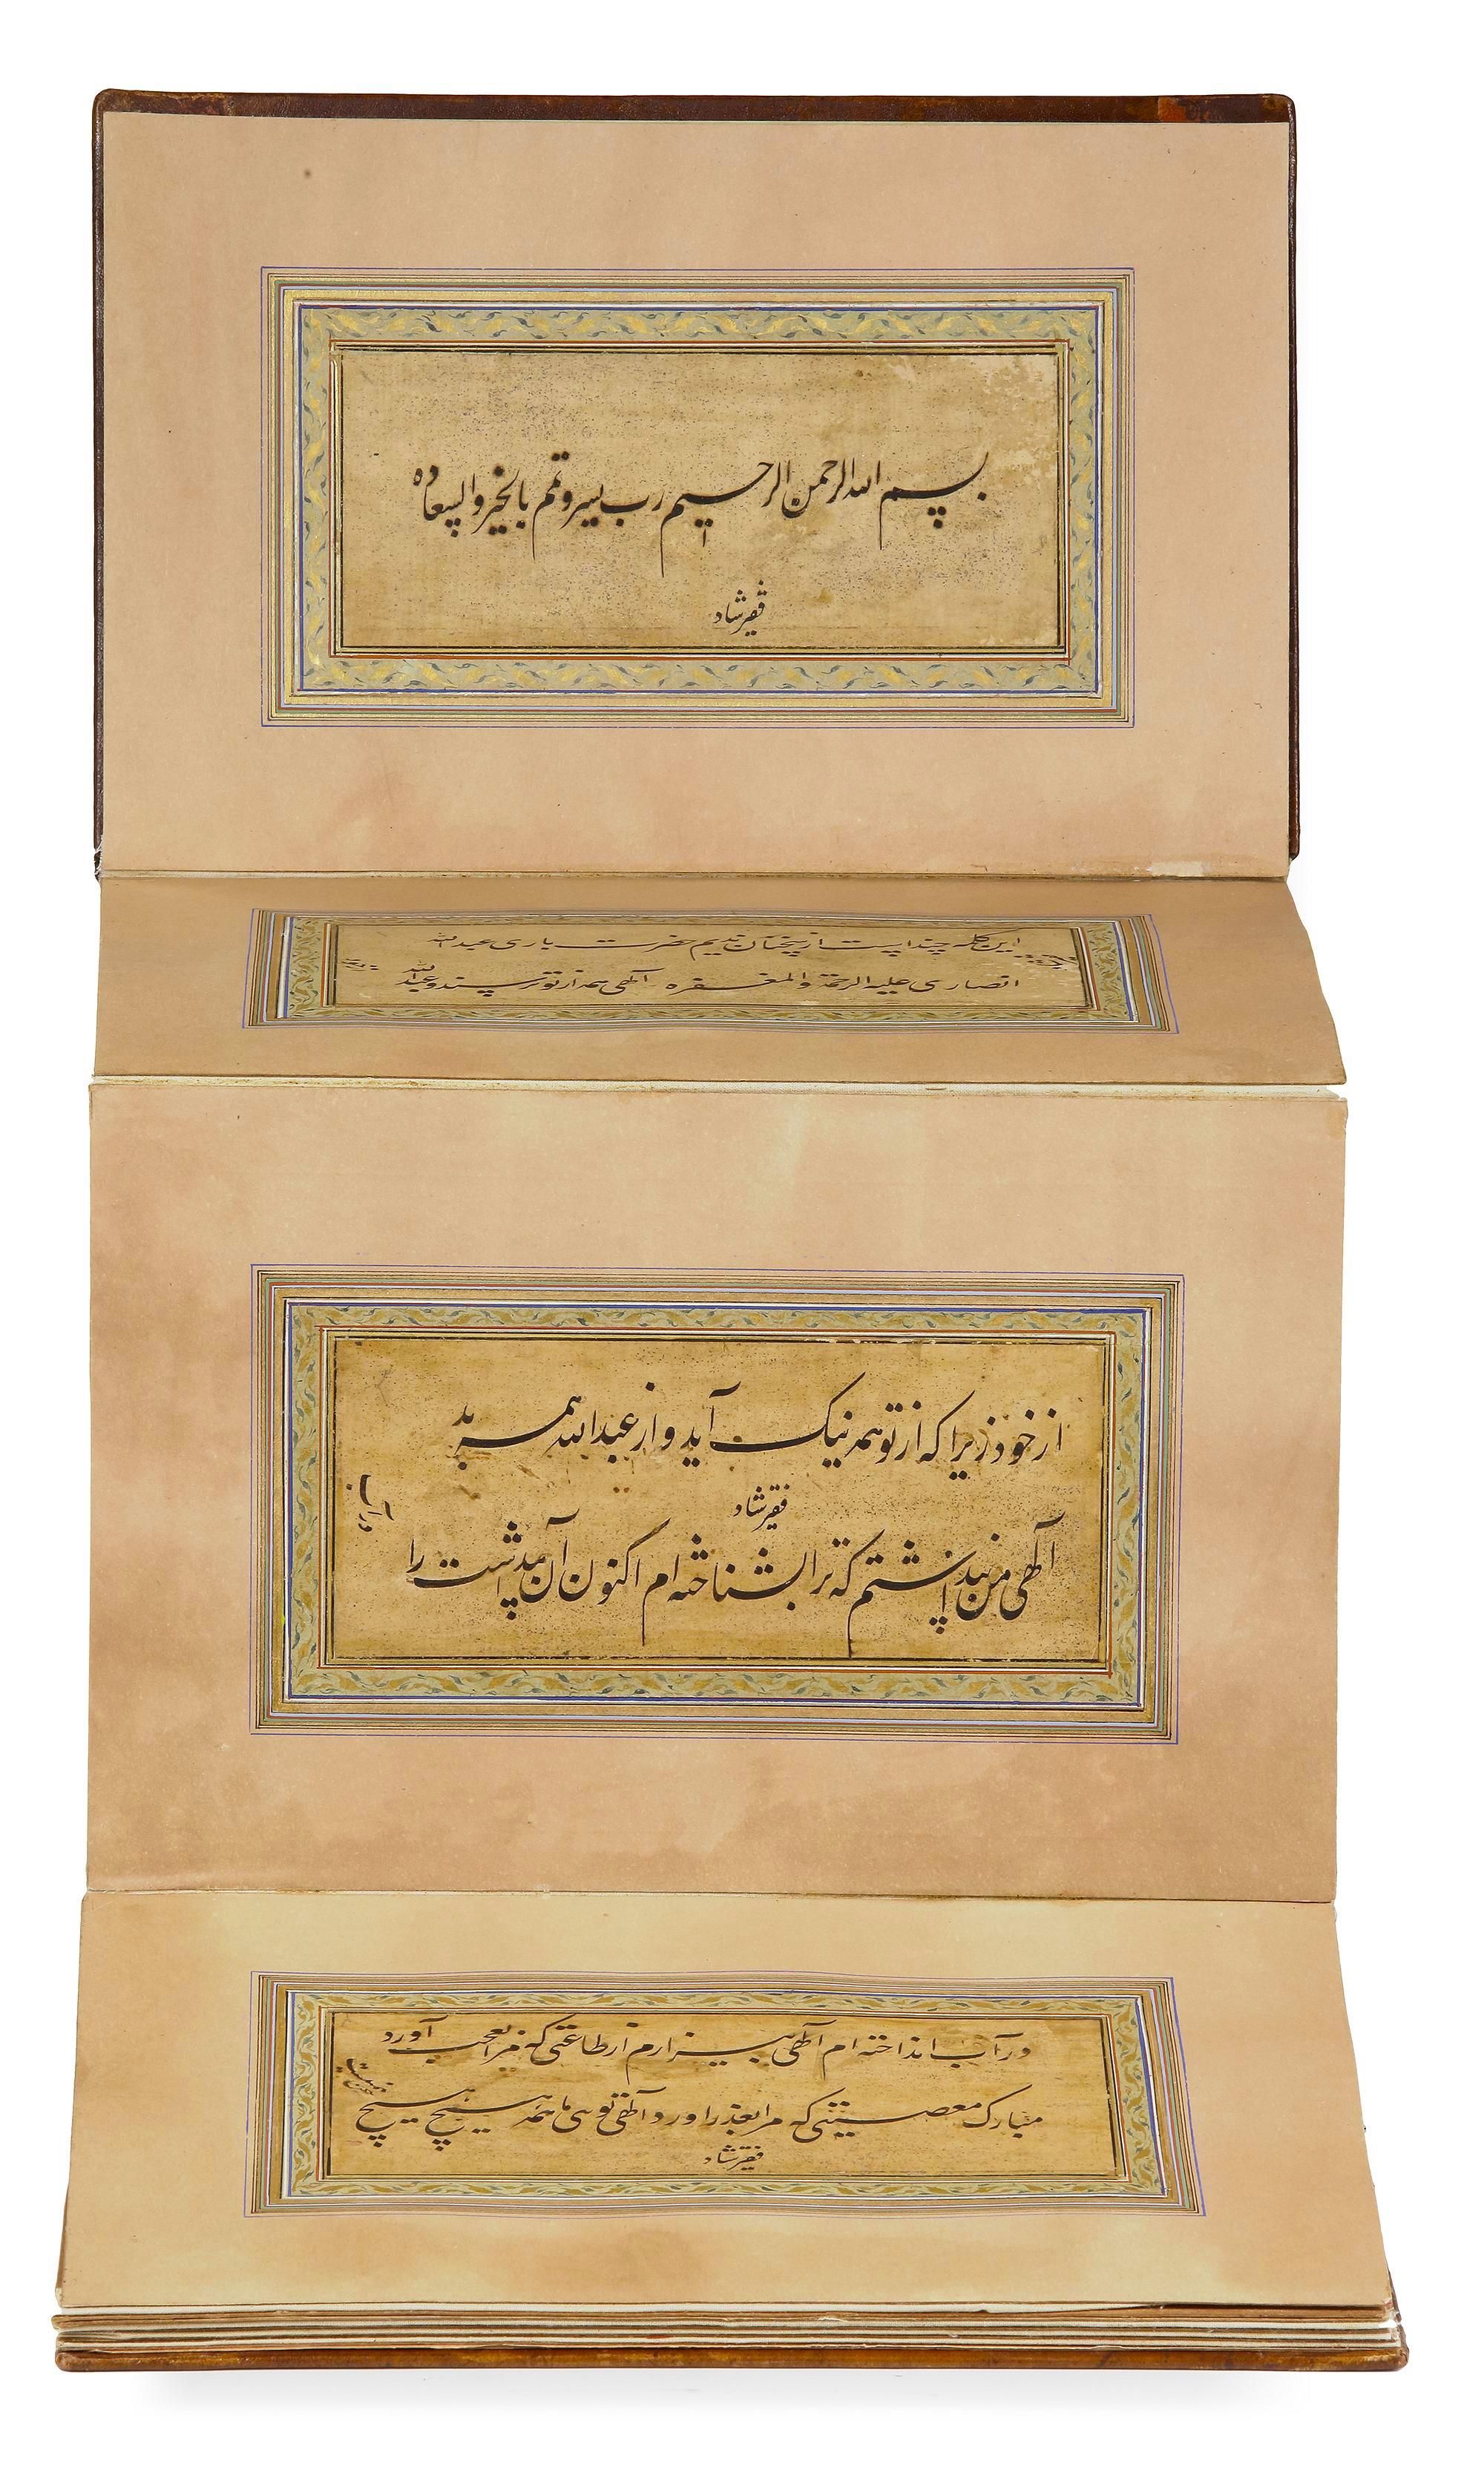 بسم الله الرحمن الرحیم رب یسر و تمم بالخیر والسعاده
فقیر شاد
این کلمه چند است از سخنان ندیم حضرت باری عبدالله
انصاری علیه الرحمة والمغفره الهی همه از تو ترسند و عبدالله
از خود زیرا که از تو همه نیک آید و از عبدالله همه بد
فقیر شاد
الهی من پنداشتم که ترا بشناخته ام اکنون آن پنداشت را
در آب انداخته ام الهی بیزارم از طاعتی که مرا بعجب آورد
مبارک معصیتی که مرا بعذر آورد الهی تو بی ما همه هیچ هیچ
فقیر شاد